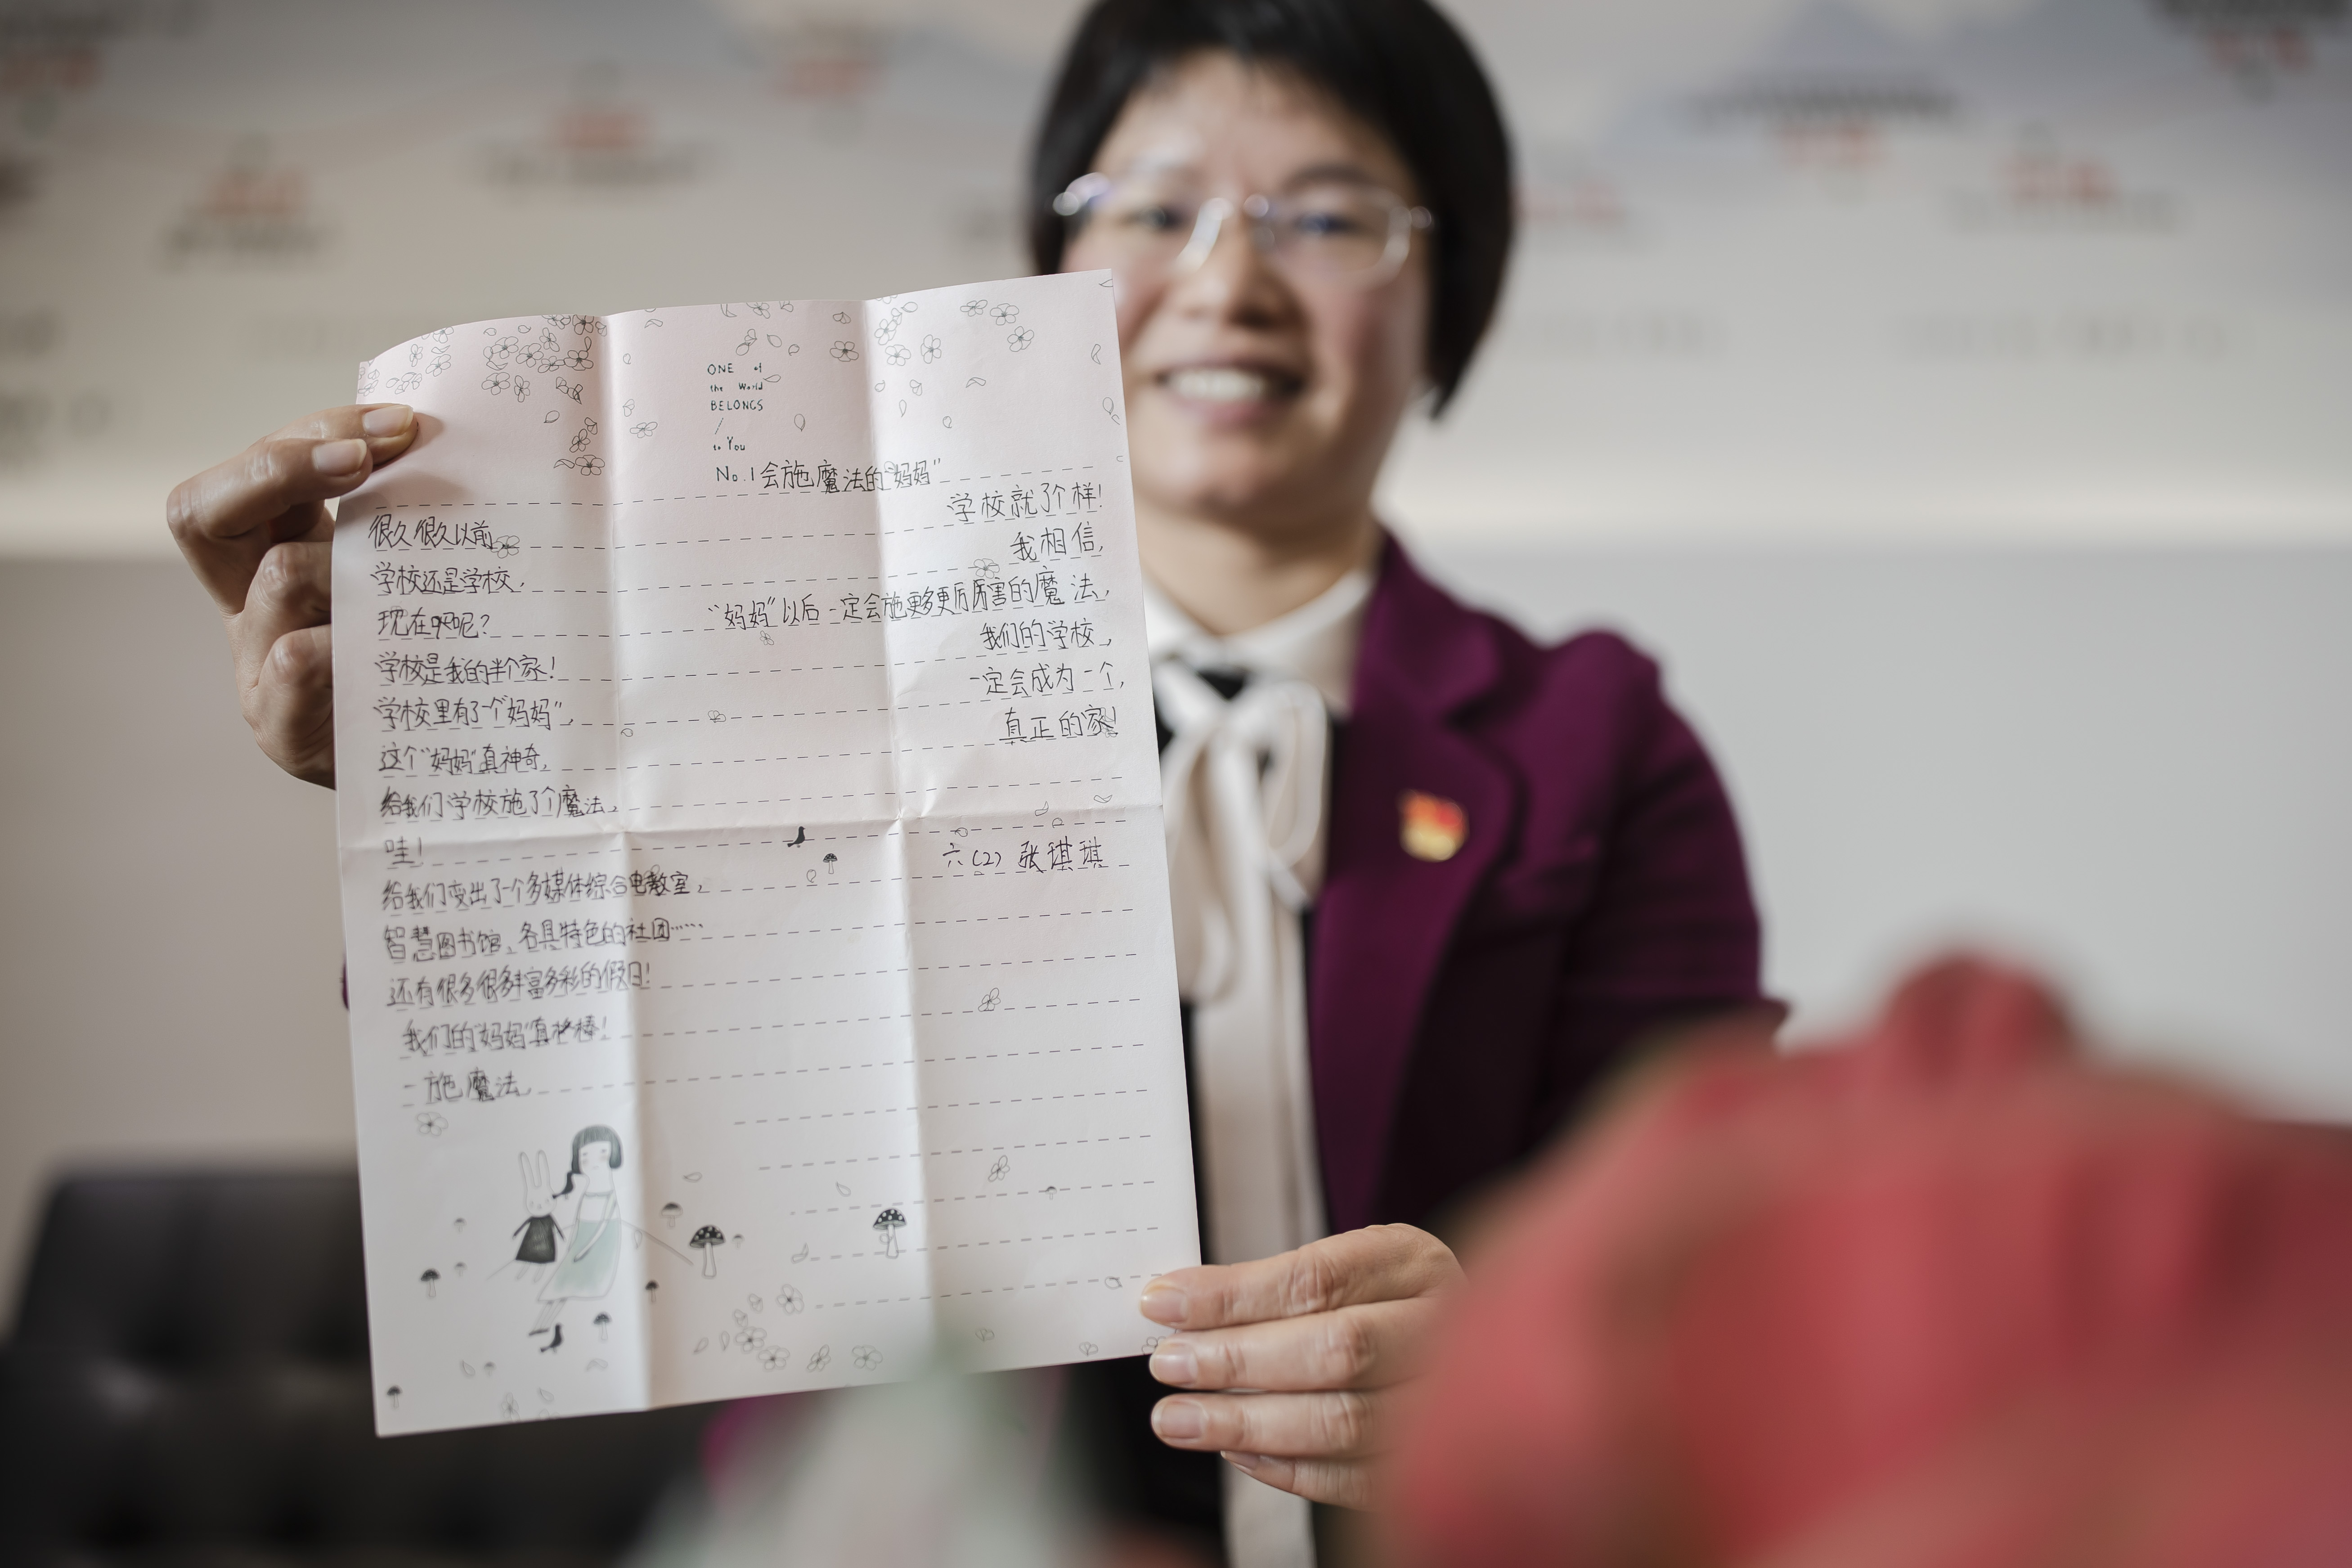 ONE of
the World
BELONGS
/
to You
No.1会施魔法的“妈妈”
很久很久以前,
学校还是学校,
现在吧呢?
学校是我的半个家!
学校里有了个“妈妈”,
这个“妈妈”真神奇,
给我们学校施了个魔法,
哇!
给我们变出了一个多媒体综合电教室,
智慧图书馆、各具特色的社团……
还有很多很多丰富多彩的假日!
我们的“妈妈”真棒!
一施魔法,
学校就了个样!
我相信,
“妈妈”以后一定会施更多更厉害的魔法,
我们的学校,
一定会成为一个,
真正的家!
六(2) 张琪琪